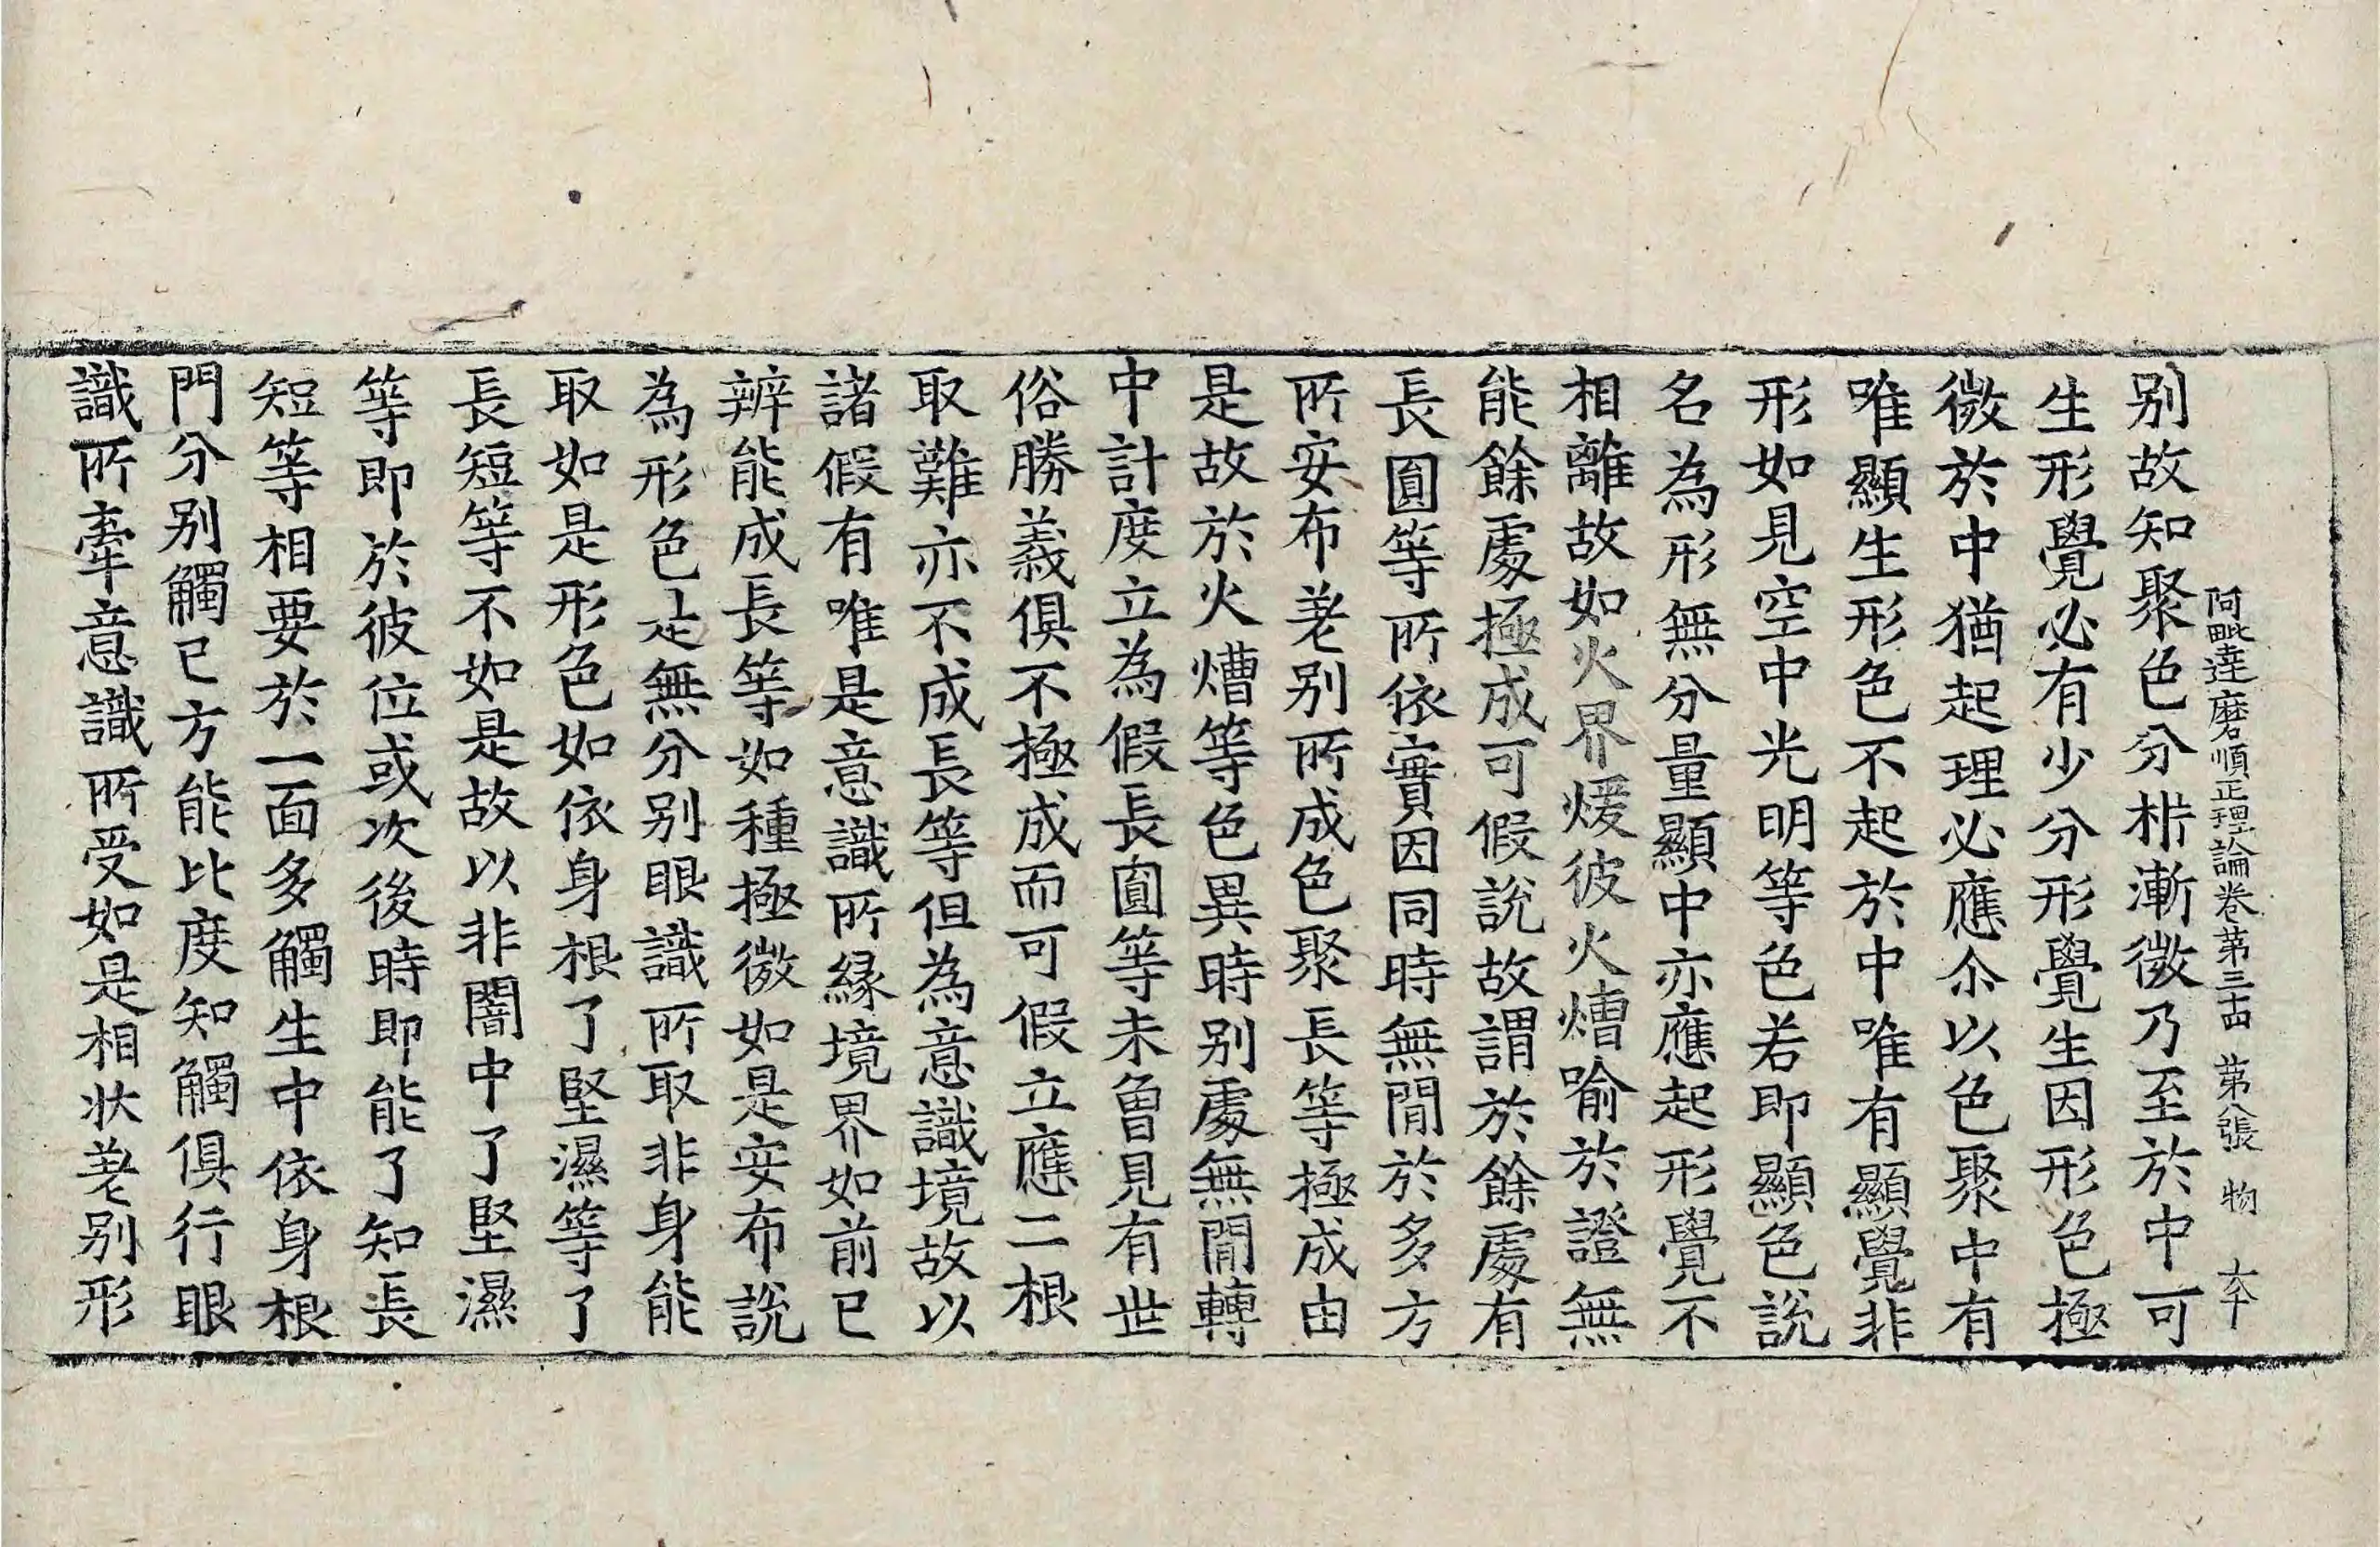 阿毗達磨順正理論卷第三十四 第八張 物 大卞
别故知聚色分枡漸微乃至於中可
生形覺必有少分形覺生因形色極
微於中猶起理必應尒以色聚中有
唯顯生形色不起於中唯有顯覺非
形如見空中光明等色若即顯色說
名為形無分量顯中亦應起形覺不
相離故如火界煖彼火㷮喻於證無
能餘處極成可假說故謂於餘處有
長圓等所依實因同時無閒於多方
所安布差别所成色聚長等極成由
是故於火㷮等色異時别處無閒轉
中計度立為假長圓等未曾見有世
俗勝義俱不極成而可假立應二根
取難亦不成長等但為意識境故以
諸假有唯是意識所緣境界如前已
辨能成長等如種極微如是安布說
為形色是無分别眼識所取非身能
取如是形色如依身根了堅濕等了
長短等不如是故以非闇中了堅濕
等即於彼位或次後時即能了知長
短等相要於一面多觸生中依身根
門分别觸已方能比度知觸俱行眼
識所牽意識所受如是相狀差别形